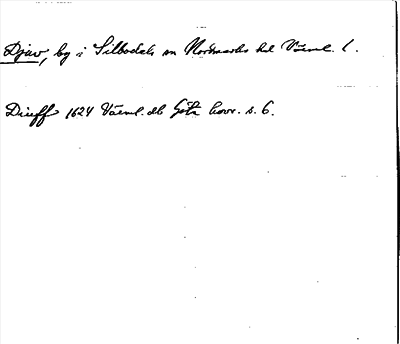 Djuv, by i Silbodals sn Nordmarks hd Värml. l.
Diuff 1624 Värml. db Göta hovr. s. 6.